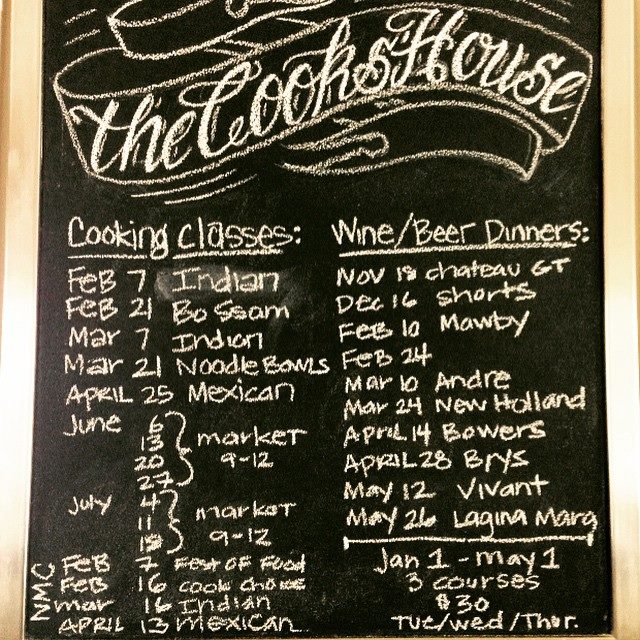 the Cooks House
Cooking Classes:
Feb 7 Indian
Feb 21 Bo Ssam
Mar 7 Indian
Mar 21 Noodle Bowls
April 25 Mexican
June 6
13
20
27
market
9-12
July 4
11
18
market
9-12
NMC
Feb 7 Fest of Food
Feb 16 Cook Choice
Mar 16 Indian
April 13 Mexican
Wine/Beer Dinners:
Nov 18 Chateau GT
Dec 16 Shorts
Feb 10 Mawby
Feb 24
Mar 10 Andre
Mar 24 New Holland
April 14 Bowers
April 28 Brys
May 12 Vivant
May 26 Lagina Marq
Jan 1 - May 1
3 courses
$30
Tue/Wed/Thur.